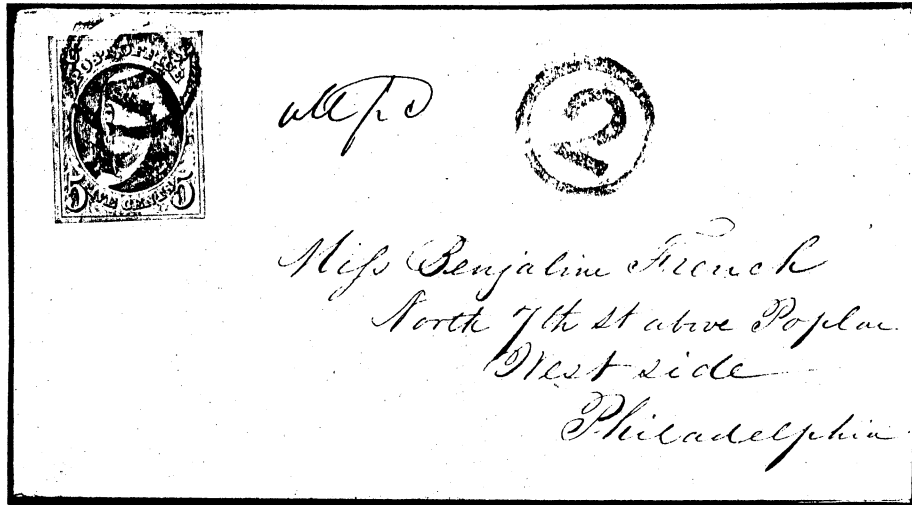 POST OFFICE
5 FIVE CENTS 5
all pd
2
Miss Benjaline French
North 7th St above Poplar
West side
Philadelphia